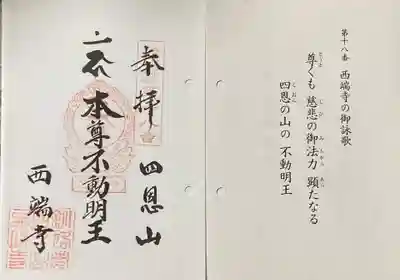 第十八番 西端寺の御詠歌
尊くも 慈悲の御法力 顕たなる
四恩の山の 不動明王
奉拝 四恩山
本尊不動明王
西端寺